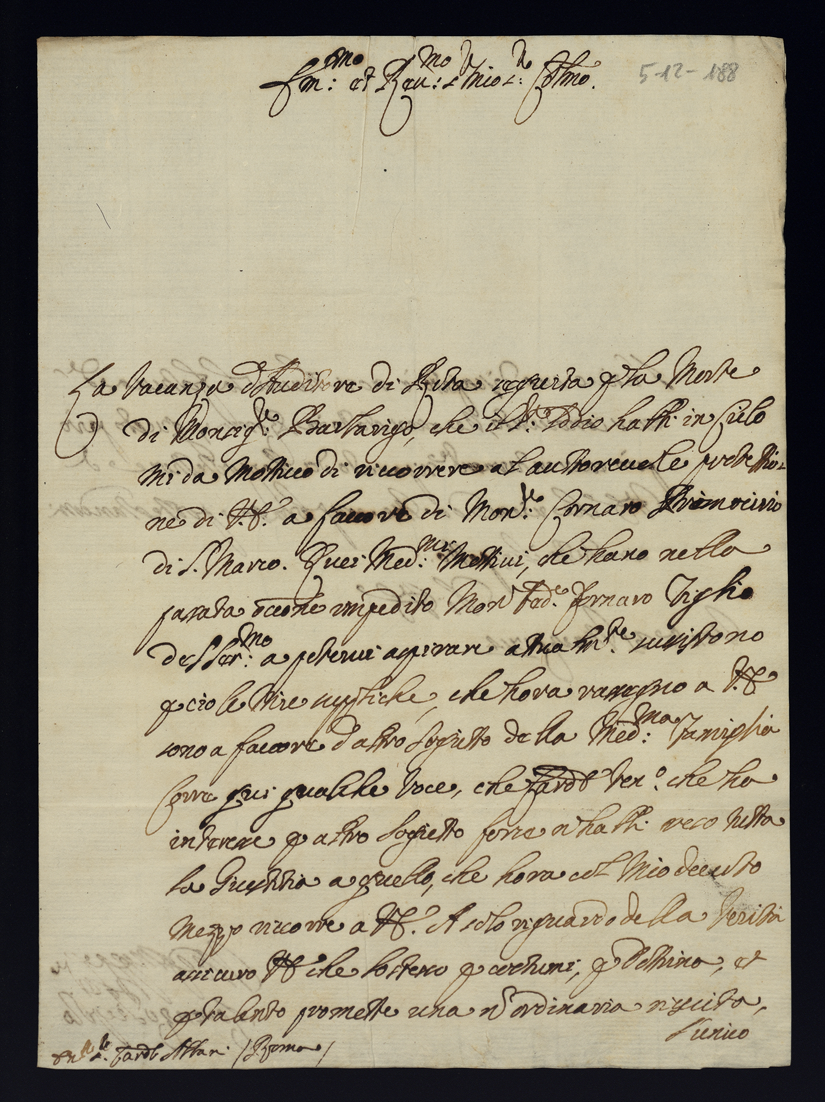 Em:mo et Reu:mo S.r mio S.r Col.mo
5-12-188
La Vacanza d'Auditore di Rota seguita p la Morte
di Monsig.r Barbarigo, che il S.r Iddio habbi in Cielo
mi da Mottiuo di ricorrere al autoreuole protettio=
ne di V.E. a fauore di Mon.r Cornaro Primocirio
di S. Marco. Quei Med:mi Mottiui, che hano nella
pasata occ.ne impedito Mon.r Cornaro Figlio
del Ser:mo a poterui aspirare sussistono
p cio le Mie suppliche, che hora rasegno a V.E.
sono a fauore d'altro Sogieto della Med:ma Famiglia
Corre qui qualche Voce, che Card.l Ven.o che ha
interese p altro Sogietto forse n habbi reso tutta
la Giustitia a quello, che hora col Mio
Mezzo ricorre a V.E. A solo riguardo della Verità
asicuro V.E. che Costumi, p Dottrina, et
p talento promette una n ordinaria riuscita,
l'unico
S.r Card.l Albani (Roma)